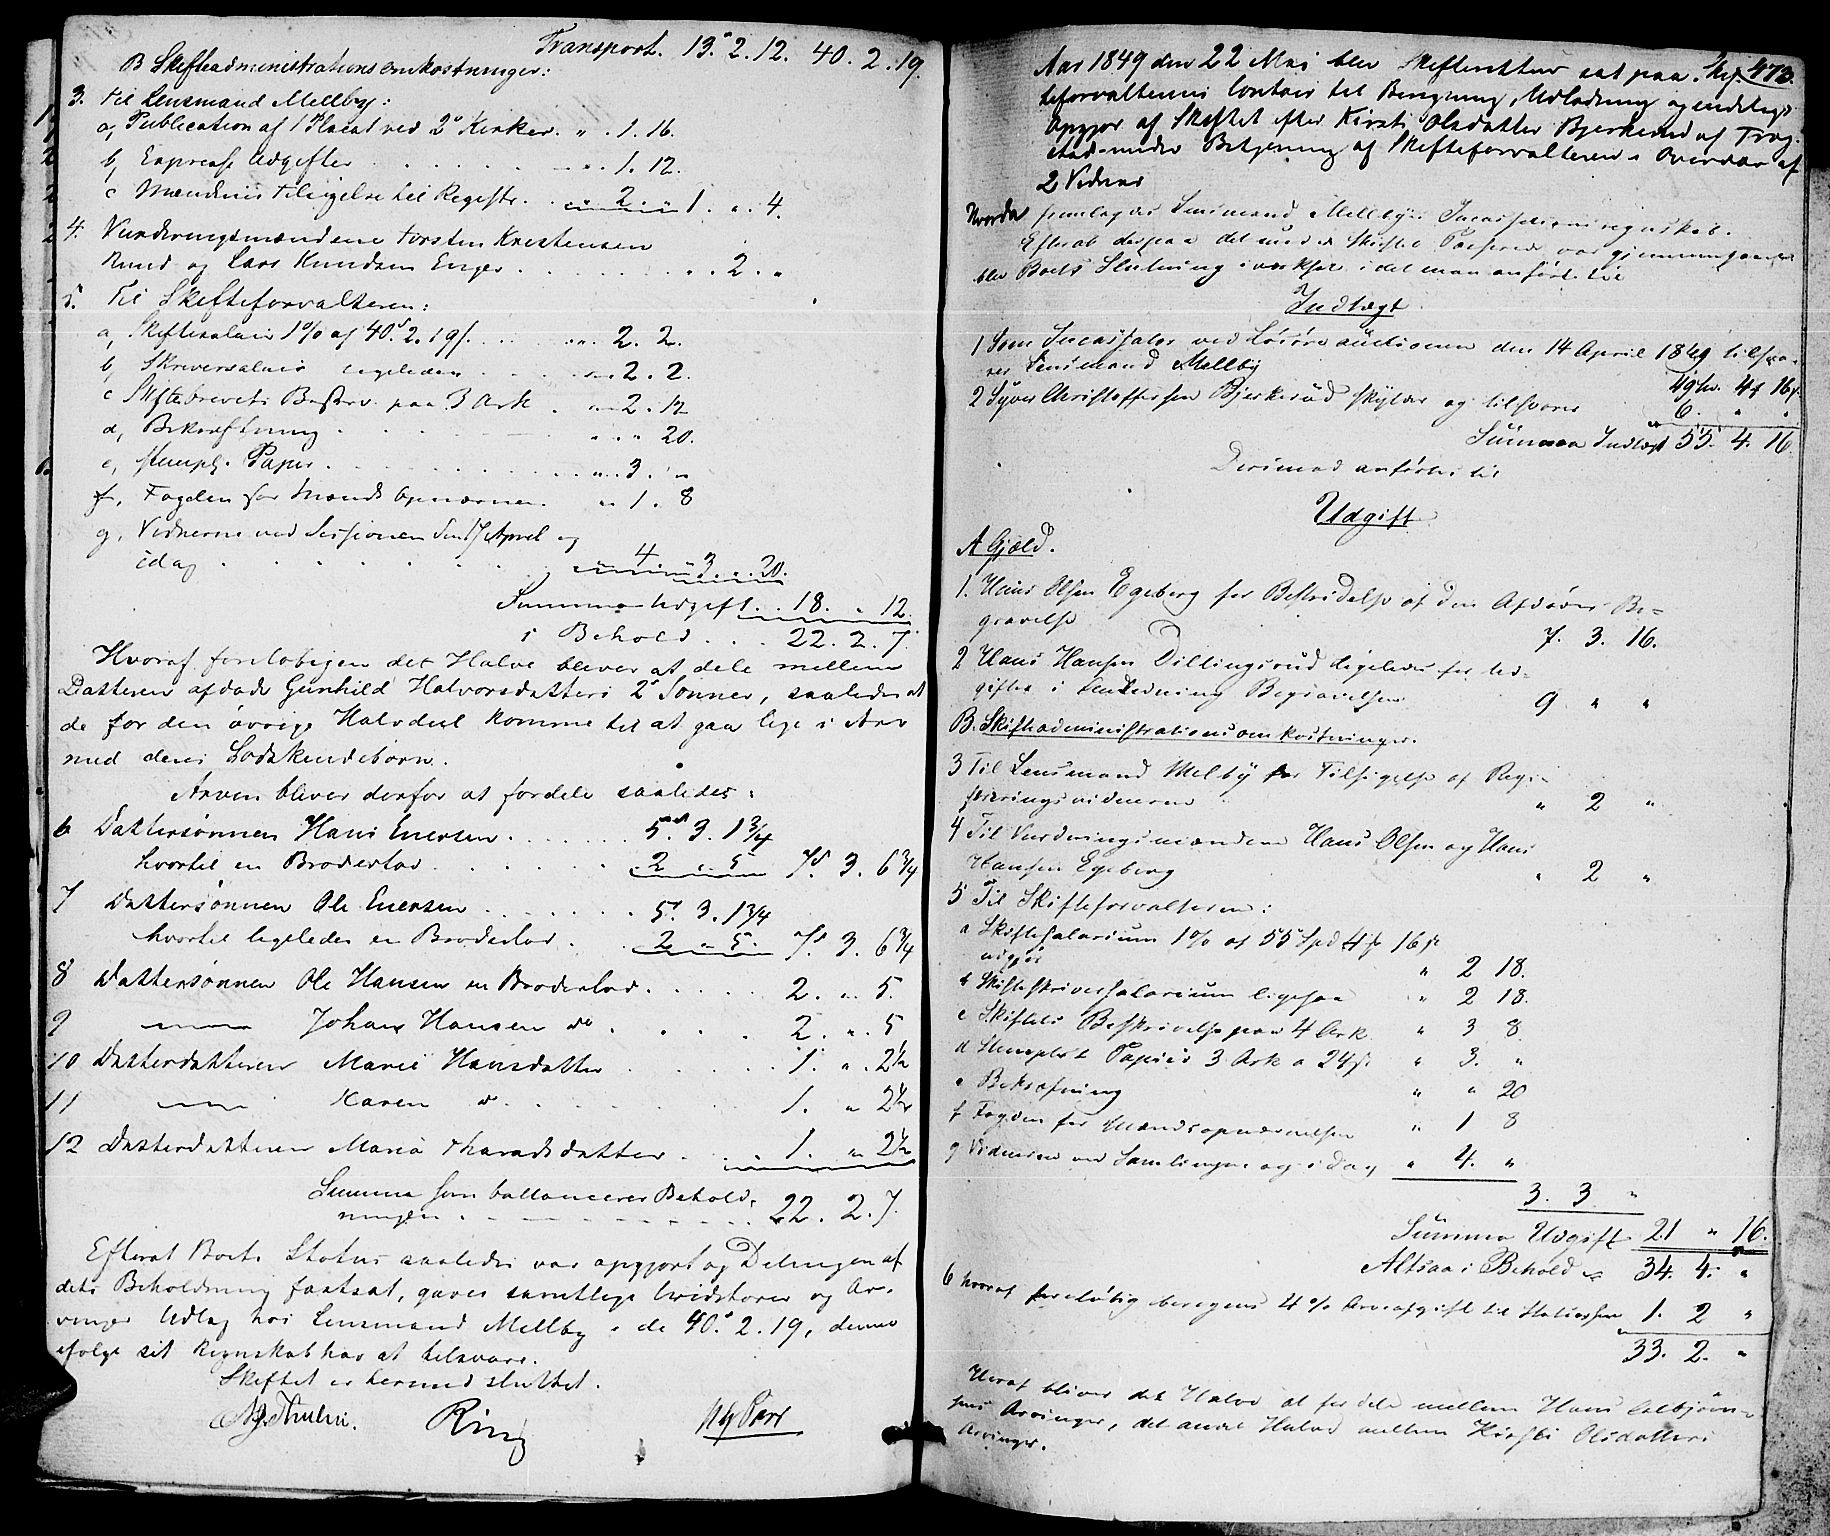 Transport. 13. 2. 12. 40. 2. 19.
B Skifteadministrationsomkostninger:
3. Til Lensmand Mellby:
a, Publication af 1 Placat ved 2 Kirker. " . 1. 16.
b, Expresse Udgifter . . . 1. 12.
c Mændenes Tilsigelse til Registr. . . 2. " 1. " 4.
4. Vurderingsmændene Torsten Kristensen
Rund og Lars Knudsen Enger . . . . " . 2. "
5. Til Skifteforvalteren:
a, Skiftesalair 1% af 40. 2. 19/. . . . " 2. 2.
b, Skriversalair ligeledes . . . " 2. 2.
c Skiftebrevets Beskriv. paa 3 Ark . " 2. 12
d, Bekræftning . . . " " 20.
e, stempl. Papir . . . " 3. "
f, Fogden for Mænds Opnævnen. " 1. 8
g, Vidnerne ved Sessionen den 17 April og
idag . . . 4 " 3. 20.
Summa Udgift . . 18. " 12.
i Behold . . . 22. 2. 7.
Hvoraf foreløbigen det Halve bliver at dele mellem
Datteren afdøde Gunhild Halvorsdatters 2 Sønner, saaledes at
de for den øvrige Halvdeel komme til at gaa lige i Arv
med deres Sødskendebørn.
Arven bliver derfor at fordele saaledes:
6 Dattersønnen Hans Enersen . . . 5. 3. 1 3/4
hvortil en Broderlod . . . 2 " 5 7. 3. 6 3/4
7 Dattersønnen Ole Enersen . . . 5. 3. 1 3/4
hvortil ligeledes en Broderlod . . 2 " 5. 7. 3. 6 3/4
8 Dattersønnen Ole Hansen en Broderlod . . . 2. " 5.
9 — Johan Hansen do . . . 2. " 5
10 Datterdatteren Marie Hansdatter . . . 1. " 2 1/2
11 — Karen d . . . 1. " 2 1/2
12 Datterdatteren Maria Tharaldsdatter . . . 1. " 2 1/2
Summa som ballancerer Behold-
ningen . . . 22. 2. 7.
Efterat Boets Status saaledes var opgjort og Delingen af
dets Beholdning fastsat, gaves samtlige Creditorer og Ar-
vinger Udlæg hos Lensmand Mellby i de 40. 2. 19, denne
ifølge sit Regnskab har at tilsvare.
Skiftet er hermed sluttet.
Thulin. Ring
Aar 1849 den 22 Mai blev Skifteretten sat paa Skif 473.
teforvalterens Contoir til Beregning, Udlodning og endeligt
Opgjør af Skiftet efter Kirsti Olsdatter Bjerkerud af Trøg-
stad under Betjening af Skifteforvalteren i Overvær af
2 Vidner
Hvorda fremlagdes Lensmand Mellbys Incassationsregnskab.
Efterat derpaa det under Skiftet Passerede var gjennemgaaet
blev Boets Slutning iværksat idet man anførte til
Indtægt
1 Som Incassator ved Løsøreauctionen den 14 April 1849 tilsva-
rer Lensmand Mellby 49 4 16
2 Syver Christoffersen Bjerkerud skylder og tilsvarer 6. " "
Summa Indtægt 55. 4. 16.
Derimod anførtes til
Udgift
A Gjæld.
1. Hans Olsen Egeberg for Bestridelse af den Afdødes Be-
gravelse 7. 3. 16.
2 Hans Hansen Dillingsrud ligeledes for Ud-
gifter i Anledning Begravelsen 9 " "
B. Skifteadministrationsomkostninger.
3 Til Lensmand Melby for Tilsigelse af Regi-
streringsvidnerne " 2 "
4 Til Vurderingsmændene Hans Olsen og Hans
Hansen Egeberg " 2 "
5 Til Skifteforvalteren:
a Skiftesalarium 1% af 55 Spd 4 16
udgjør " 2 18.
b Skifteskriversalarium ligesaa " 2 18.
c Skiftets Beskrivelse paa 4 Ark " 3 8.
d Stemplet Papiir 3 Ark a 24 " 3. "
e Bekræftning " " 20
f Fogden for Mændsopnævnelsen " 1 8
g Vidnerne ved Samlingen og i Dag " 4. "
3. 3 "
Summa Udgift 21 " 16.
Altsaa i Behold 34. 4. "
6 hvoraf foreløbig beregnes 4% Arveafgift til Statscassen 1. 2 "
33. 2. "
Heraf bliver det Halve at fordele mellem Hans
sens Arvinger, det andet Halve mellem Kirsti Olsdatters
Arvinger.